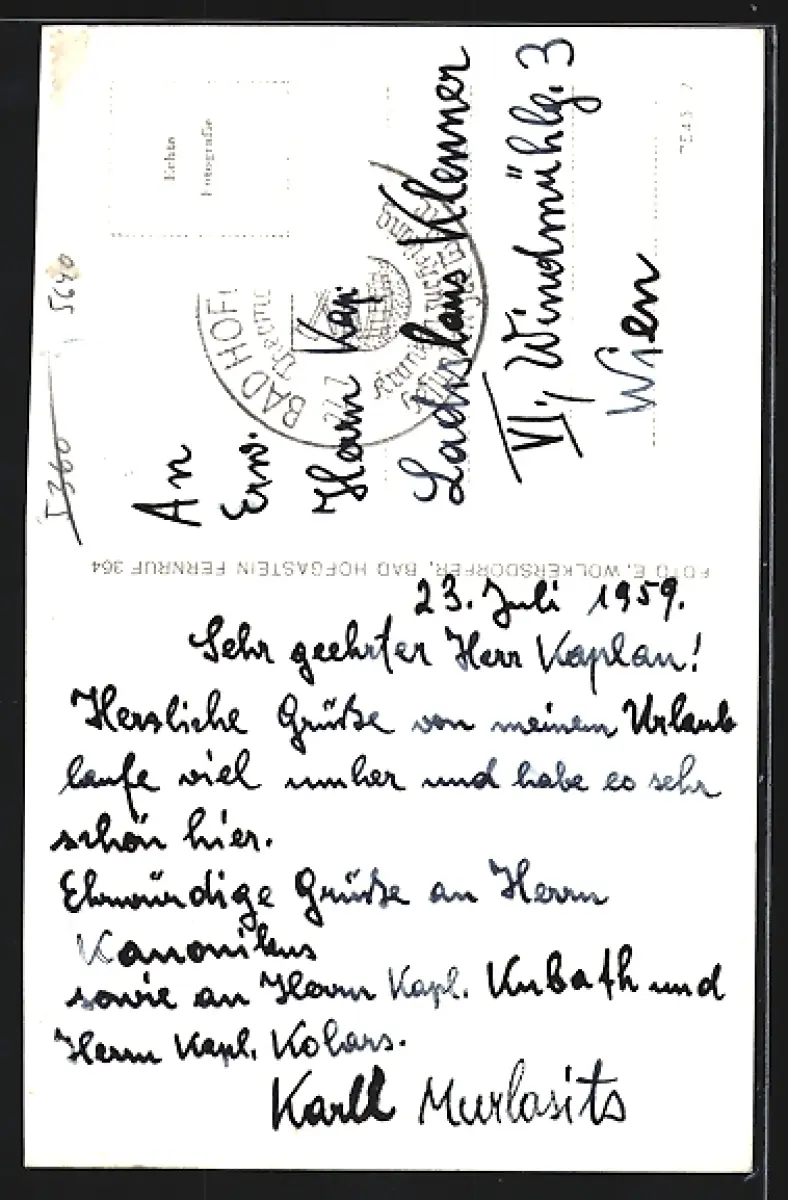 Echte
Fotografie
7545 2
5640
I 360
BAD HOF
An
Ew.
Herrn Kap.
Ladislaus Klemmer
VI., Windmühlg. 3
Wien
FOTO E. WOLKERSDORFER, BAD HOFGASTEIN FERNRUF 364
23. Juli 1959.
Sehr geehrter Herr Kaplan!
Herzliche Grüße von meinem Urlaub
laufe viel umher und habe es sehr
schön hier.
Ehrwürdige Grüße an Herrn
Kanonikus
sowie an Herrn Kapl. Kubath und
Herrn Kapl. Kolars.
Karll Murlasits